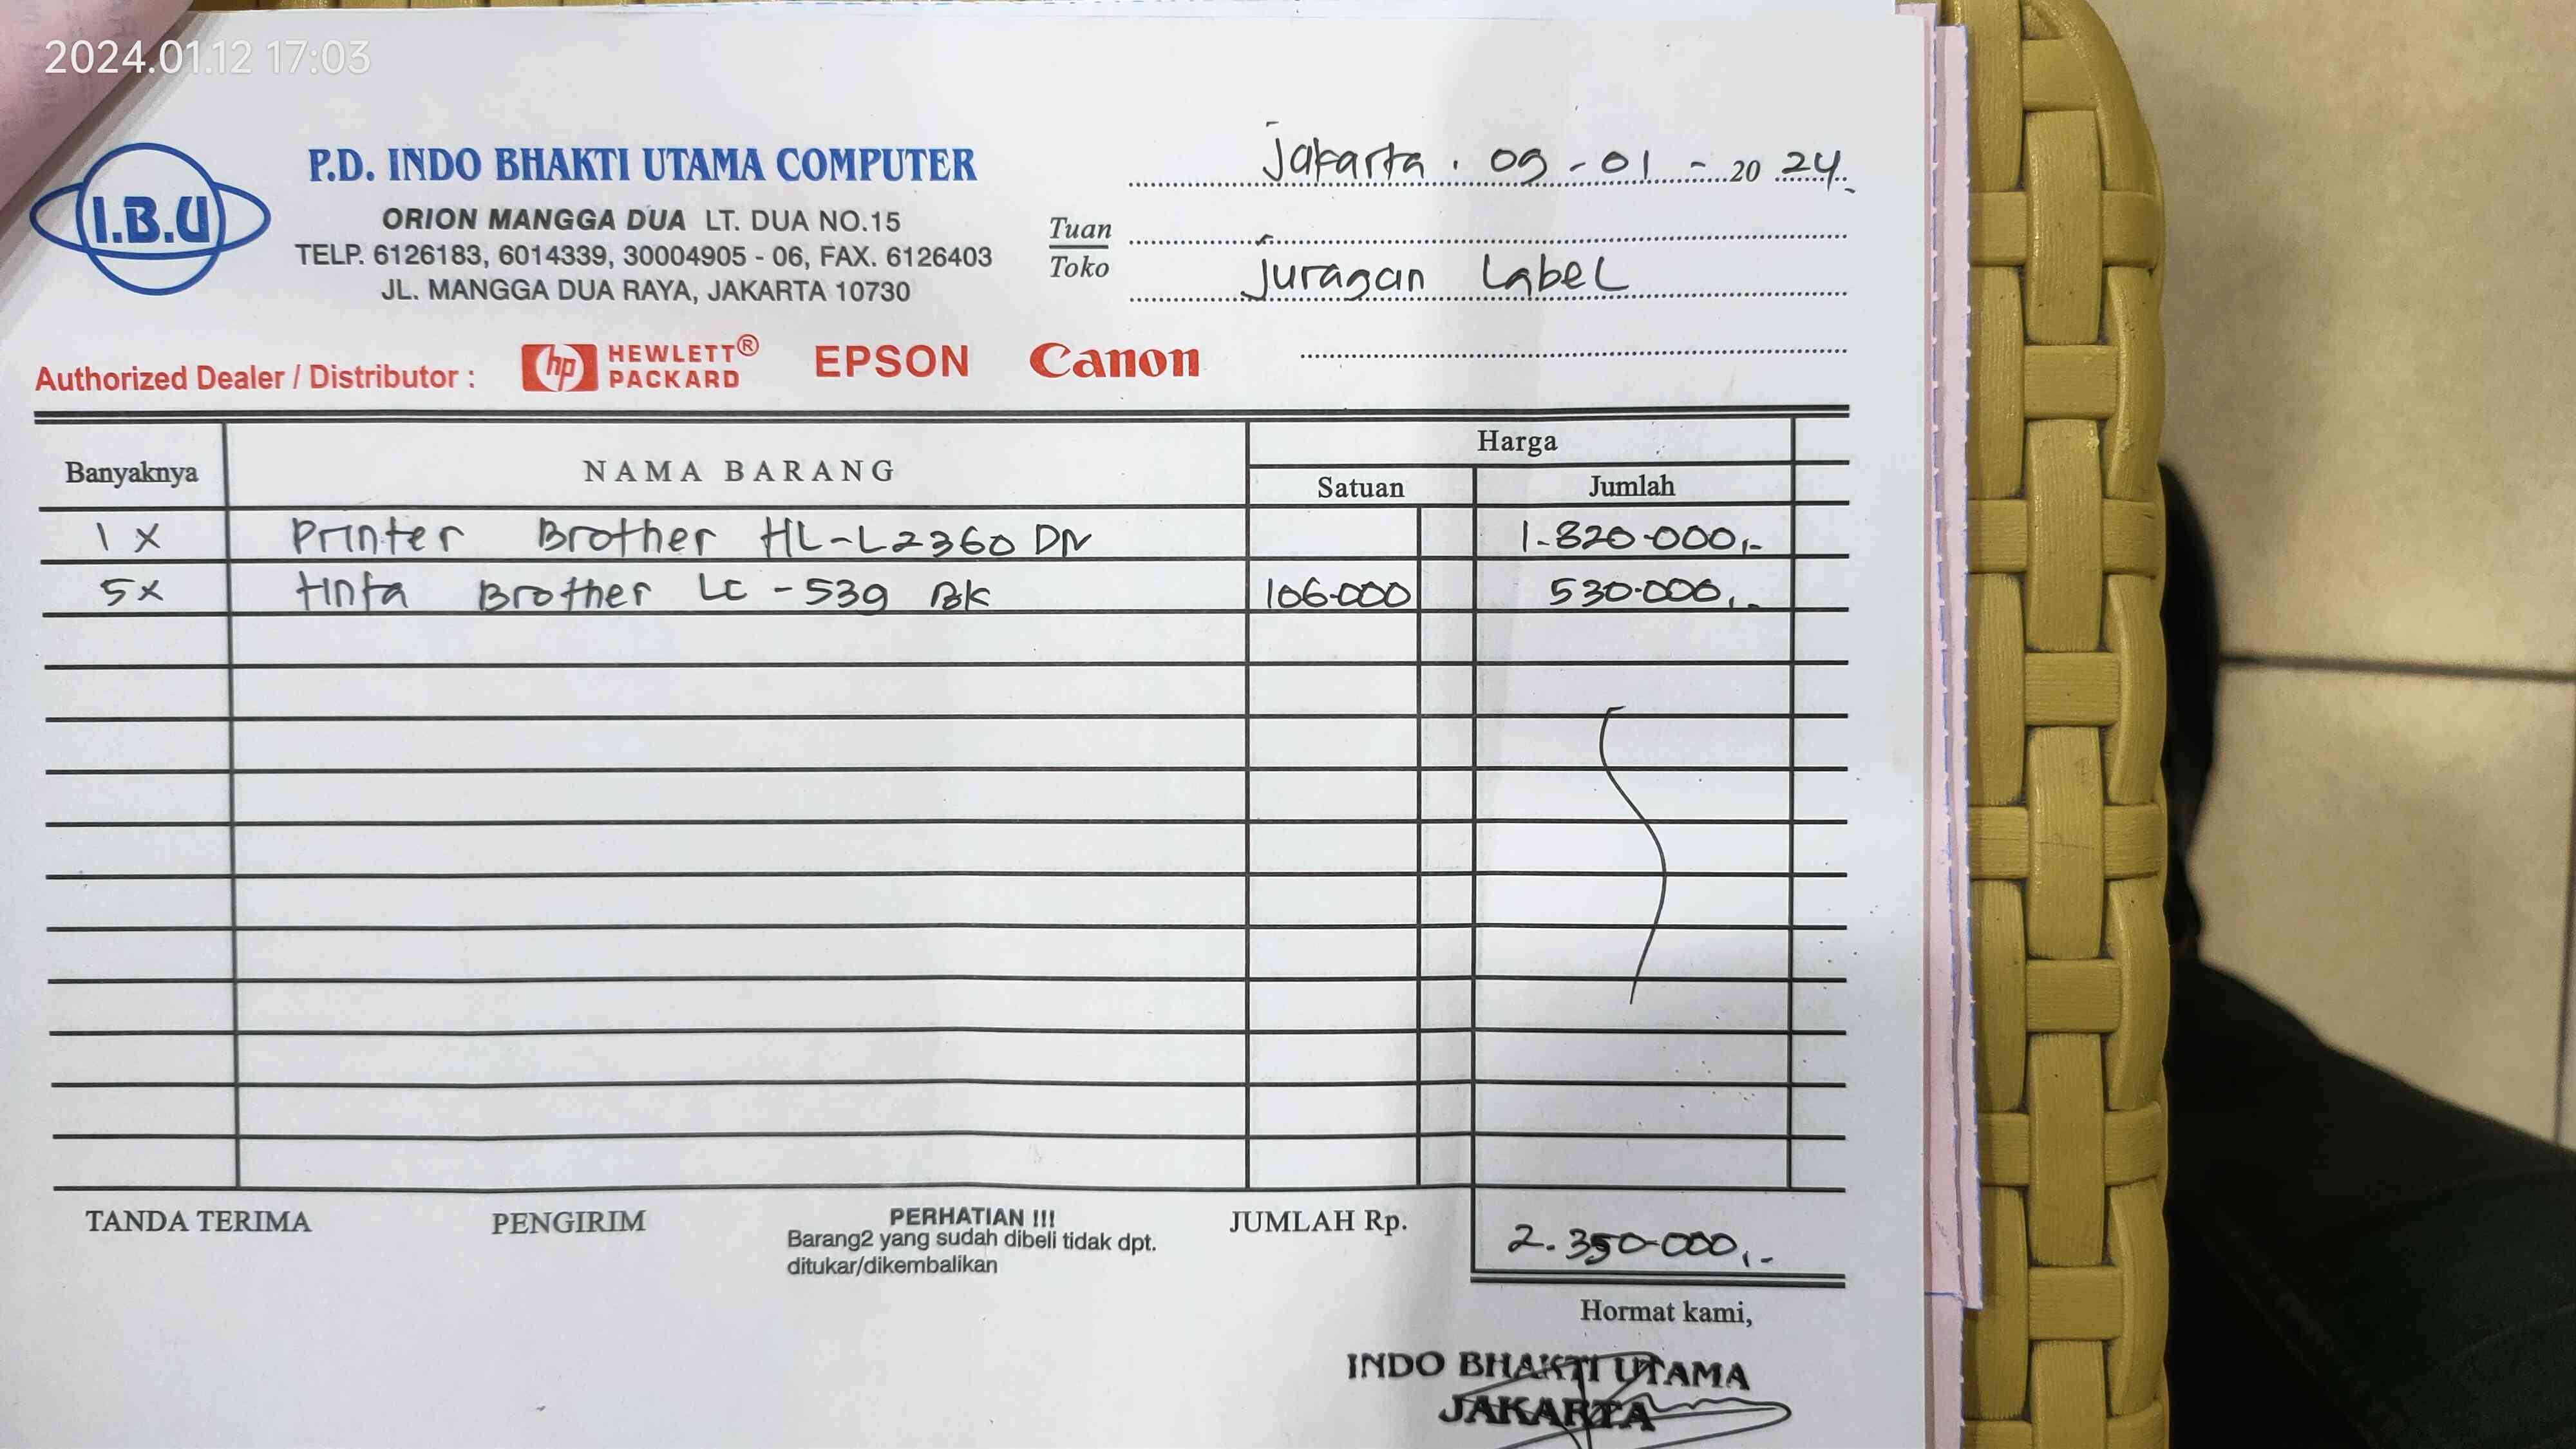 2024.01.12 17:03
I.B.U
P.D. INDO BHAKTI UTAMA COMPUTER
ORION MANGGA DUA LT. DUA NO.15
TELP. 6126183, 6014339, 30004905 - 06, FAX. 6126403
JL. MANGGA DUA RAYA, JAKARTA 10730
Jakarta . 09 - 01 - 20 24.
Tuan
Toko
Juragan Label
Authorized Dealer / Distributor : hp HEWLETT® PACKARD EPSON Canon
Banyaknya NAMA BARANG Harga
Satuan Jumlah
1 x Printer Brother HL-L2360 DN 1.820.000,-
5x tinta Brother LC - 539 BK 106.000 530.000,-
TANDA TERIMA PENGIRIM PERHATIAN !!! JUMLAH Rp. 2.350.000,-
Barang2 yang sudah dibeli tidak dpt.
ditukar/dikembalikan
Hormat kami,
INDO BHAKTI UTAMA
JAKARTA